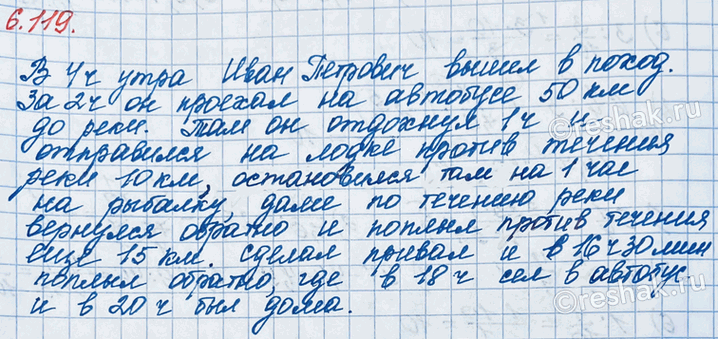 6.119.
В 4ч утра Иван Петрович вышел в поход.
За 2ч он проехал на автобусе 50 км
до реки. Там он отдохнул 1ч и
отправился на лодке против течения
реки 10 км, остановился там на 1 час
на рыбалку, далее по течению реки
вернулся обратно и поплыл против течения
еще 15 км. сделал привал и в 16ч 30 мин
поплыл обратно, где в 18 ч сел в автобус.
и в 20 ч был дома.
reshak.ru
reshak.ru
reshak.ru